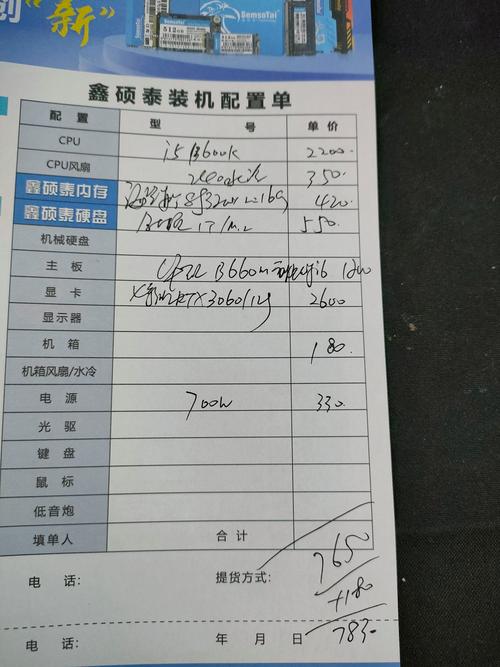 创“新”
SemsoTai
512
SemsoTai
鑫硕泰装机配置单
配 置 型 号 单 价
CPU i5 13600K 2200.
CPU风扇 240水冷 350.
鑫硕泰内存 420
鑫硕泰硬盘 1T/M.2 550.
机械硬盘
主 板 B660M 1200
显 卡 RTX3060/12g 2600
显示器
机 箱 180.
机箱风扇/水冷
电 源 700W 330.
光 驱
键 盘
鼠 标
低音炮
填单人 合 计 7650
电 话： 提货方式： +180
783
电 话： 年 月 日